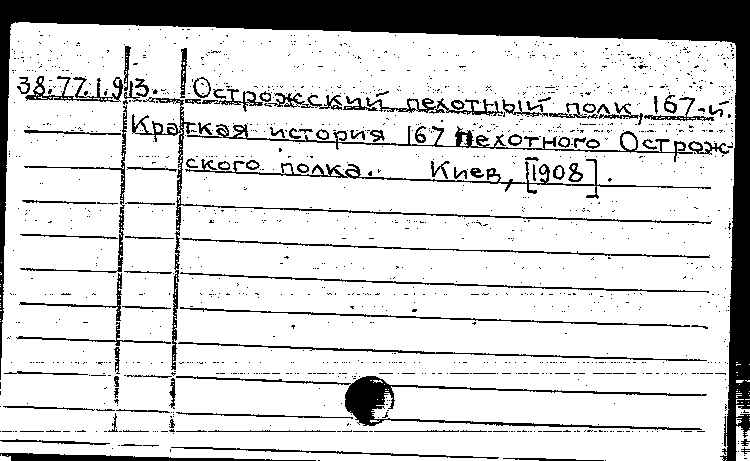 38.77.1.913. Острожский пехотный полк, 167-й.
Краткая история 167 пехотного Острож-
ского полка.. Киев, [1908].